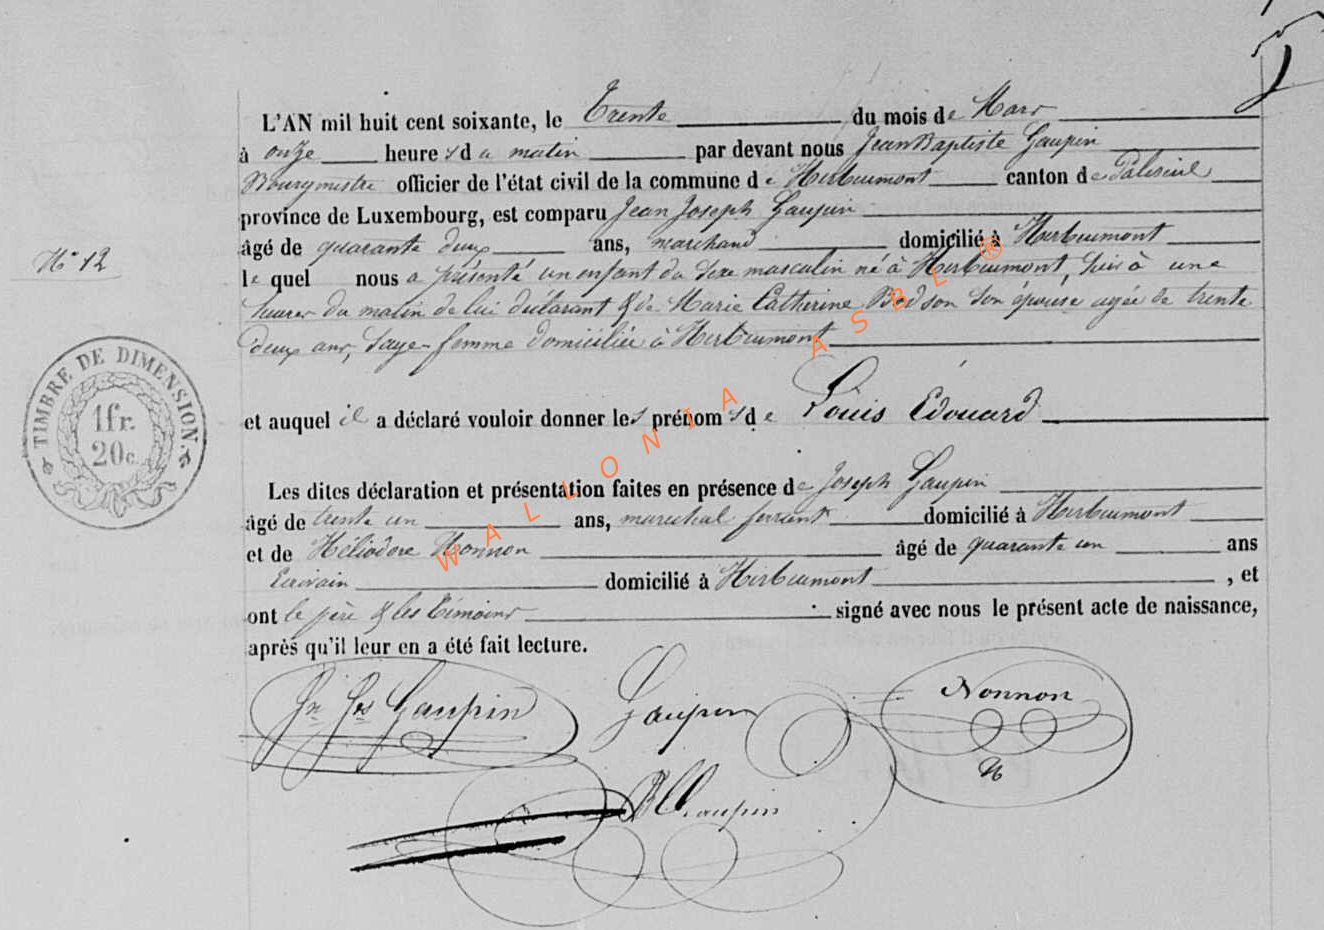 L'AN mil huit cent soixante, le Trente du mois de Mars
à onze heures du matin par devant nous Jean Baptiste Gaupin
Bourgmestre officier de l'état civil de la commune de Herbeumont canton de Paliseul
province de Luxembourg, est comparu Jean Joseph Gaupin
âgé de quarante deux ans, marchand domicilié à Herbeumont
N° 12
lequel nous a présenté un enfant du sexe masculin né à Herbeumont, hier à une
heures du matin de lui déclarant & de Marie Catherine Bodson son épouse agée de trente
deux ans, sage-femme domiciliée à Herbeumont
TIMBRE DE DIMENSION.
1fr.
20c.
et auquel il a déclaré vouloir donner les prénoms de Louis Edouard
Les dites déclaration et présentation faites en présence de Joseph Gaupin
âgé de trente un ans, maréchal ferrant domicilié à Herbeumont
et de Héliodore Nonnon âgé de quarante un ans
Ecrivain domicilié à Herbeumont, et
ont le père & les témoins signé avec nous le présent acte de naissance,
après qu'il leur en a été fait lecture.
Jn Jos Gaupin Gaupin Nonnon
H
JB Gaupin
WALLONIA ASBL ®